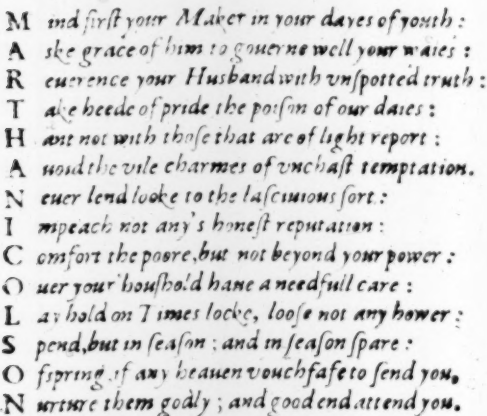 M ind firſt your Maker in your dayes of youth :
A ske grace of him to gouerne well your waies :
R euerence your Husband with vnſpotted truth :
T ake heede of pride the poiſon of our daies :
H ant not with thoſe that are of light report :
A uoid the vile charmes of vnchaſt temptation.
N euer lend looke to the laſciuious ſort :
I mpeach not any's honeſt reputation :
C omfort the poore, but not beyond your power :
O uer your houſhold haue a needfull care :
L ay hold on Times locke, looſe not any hower :
S pend, but in ſeaſon ; and in ſeaſon ſpare :
O fspring if any heauen vouchſafe to ſend you,
N urture them godly ; and good end attend you.